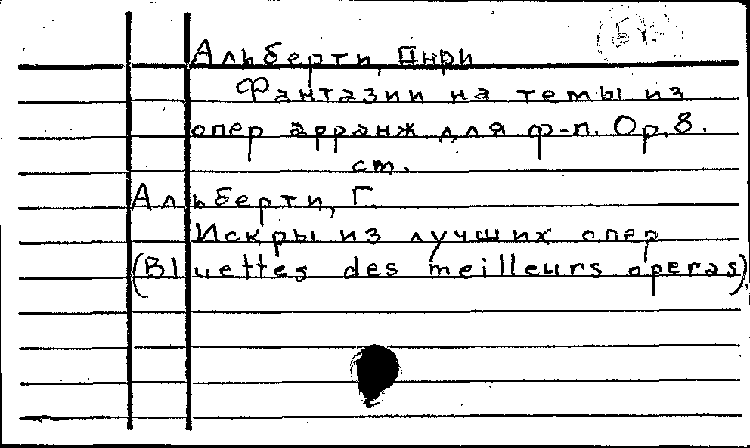 Альберти, Анри
Фантазии на темы из
опер арранж. для ф-п. Op. 8.
см.
Альберти, Г.
Искры из лучших опер
(Bluettes des meilleurs operas)